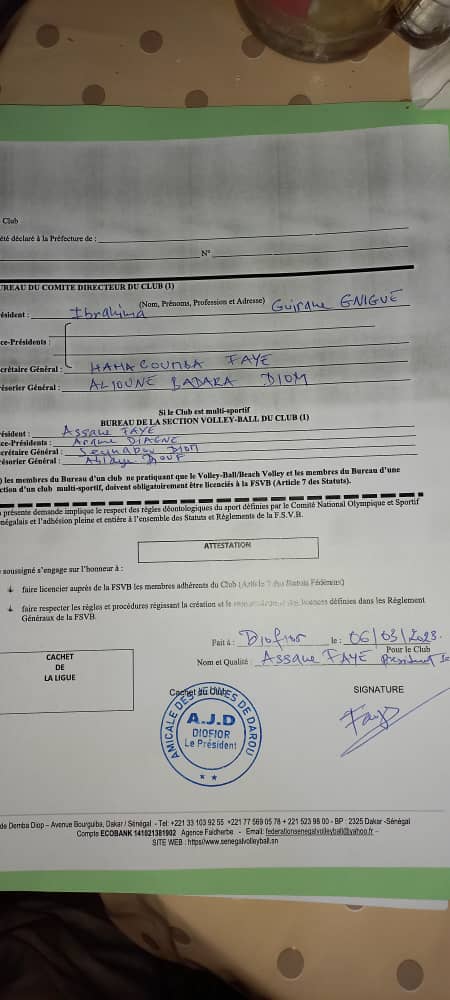 Club
été déclaré à la Préfecture de :
N°
UREAU DU COMITE DIRECTEUR DU CLUB (1)
(Nom, Prénoms, Profession et Adresse)
ésident : Ibrahima Guirane GNIGUE
ce-Présidents :
crétaire Général : MAMA COUMBA FAYE
ésorier Général : ALIOUNE BADARA DIOM
Si le Club est multi-sportif
BUREAU DE LA SECTION VOLLEY-BALL DU CLUB (1)
ésident : Assane FAYE
ce-Présidents : DIAGNE
crétaire Général : Seynabou DIOM
ésorier Général : Ablaye DIOUF
) les membres du Bureau d'un club ne pratiquant que le Volley-Ball/Beach Volley et les membres du Bureau d'une
ction d'un club multi-sportif, doivent obligatoirement être licenciés à la FSVB (Article 7 des Statuts).
présente demande implique le respect des règles déontologiques du sport définies par le Comité National Olympique et Sportif
négalais et l'adhésion pleine et entière à l'ensemble des Statuts et Règlements de la F.S.V.B.
ATTESTATION
soussigné s'engage sur l'honneur à :
faire licencier auprès de la FSVB les membres adhérents du Club (Article 7 des Statuts Fédéraux)
faire respecter les règles et procédures régissant la création et le des licences définies dans les Règlement
Généraux de la FSVB.
Fait à : Diofior le : 06/03/2023.
Pour le Club
Nom et Qualité : Assane FAYE Président
CACHET
DE
LA LIGUE
Cachet du Club
SIGNATURE
AMICALE DES JEUNES DE DAROU
A.J.D
DIOFIOR
Le Président
Faye
de Demba Diop – Avenue Bourguiba, Dakar / Sénégal - Tel: +221 33 103 92 55 +221 77 569 05 78 + 221 523 98 00 - BP : 2325 Dakar -Sénégal
Compte ECOBANK 141021381902 Agence Faidherbe - Email: federationsenegalvolleyball@yahoo.fr –
SITE WEB : https//www.senegalvolleyball.sn